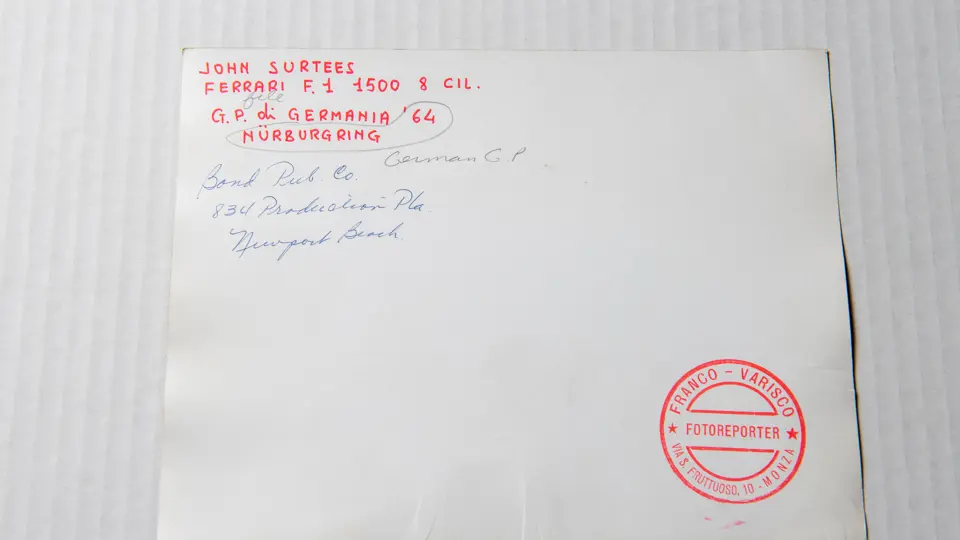 JOHN SURTEES
FERRARI F.1 1500 8 CIL.
file
G.P. di GERMANIA '64
NÜRBURGRING
German G.P.
Bond Pub. Co.
834 Production Pla.
Newport Beach.
FRANCO - VARISCO
FOTOREPORTER
VIA S. FRUTTUOSO, 10 - MONZA